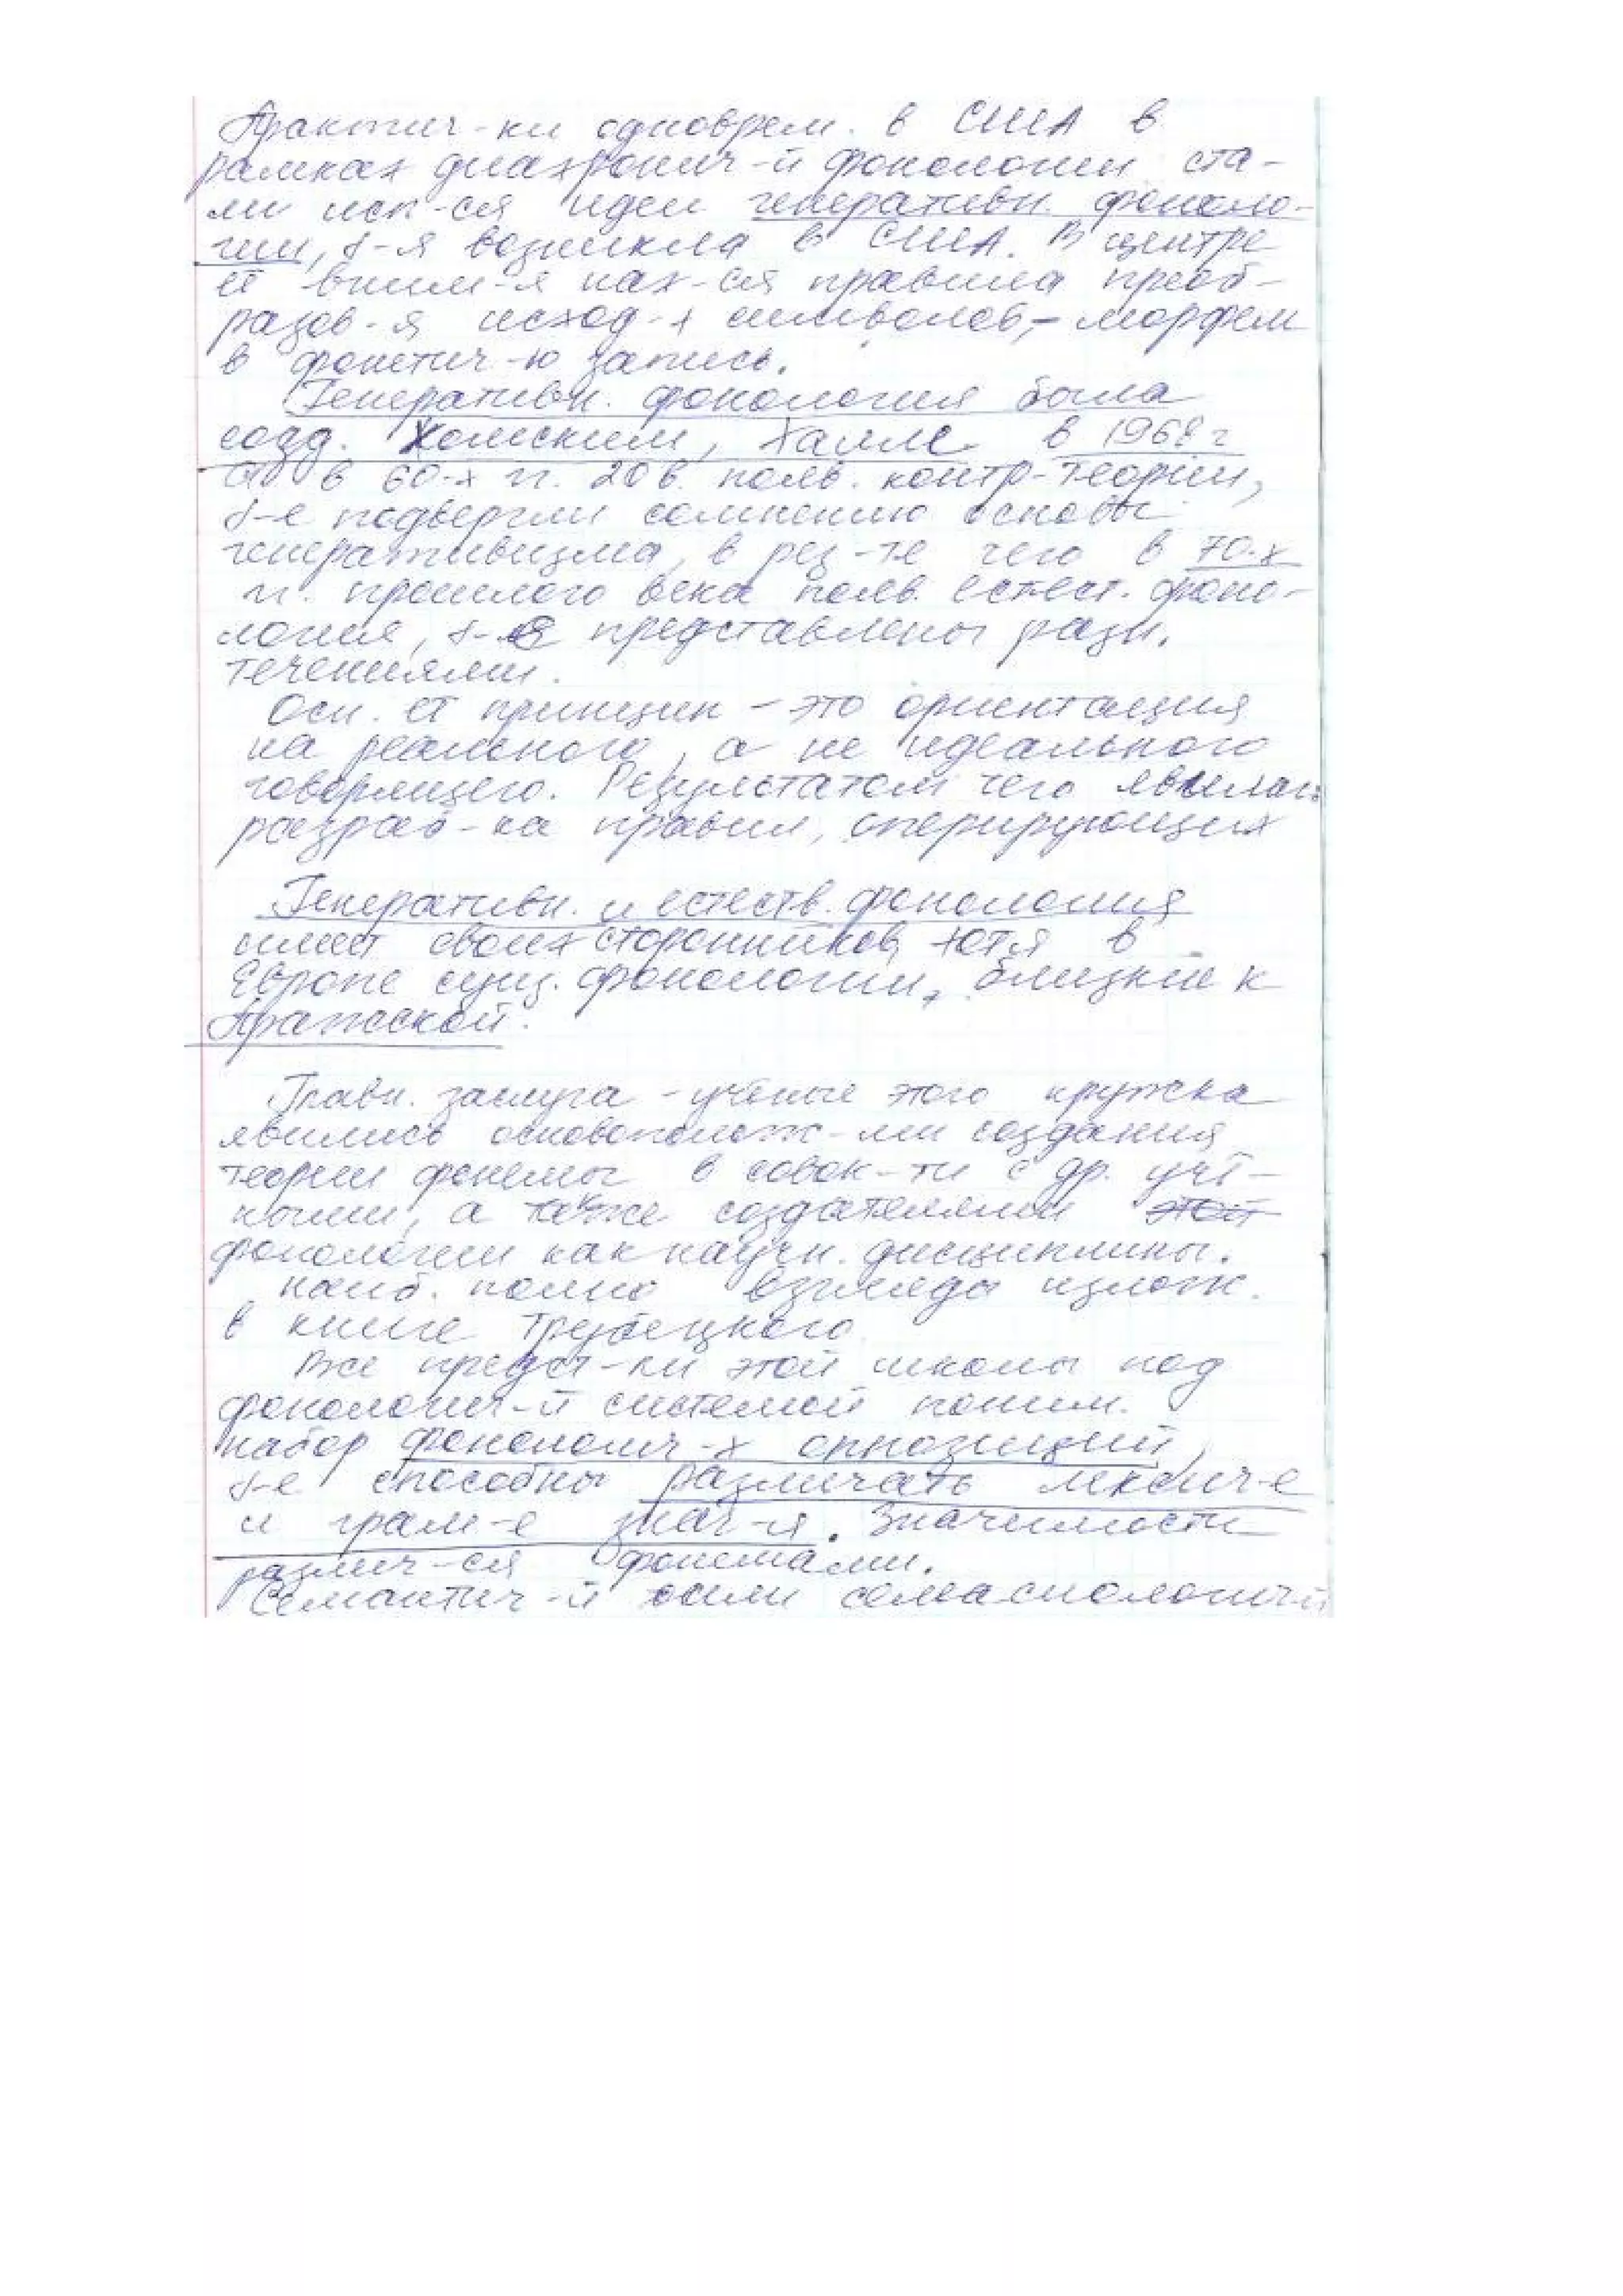 Практич-ки одноврем. в США в
рамках диахронич-й фонологии ста-
ли исп-ся идеи генеративн. фоноло-
гии, к-я возникла в США. В центре
её вним-я нах-ся правила преоб-
разов-я исход-х символов, - морфем
в фонетич-ю запись.
Генеративн. фонология была
созд. Хомским, Халле в 1968 г
в 60-х гг. 20 в. появ. контр-теории,
к-е подвергли сомнению основы
генеративизма, в рез-те чего в 70-х
гг. прошлого века появ. естест. фоно-
логия, к-я представлены разн.
течениями.
Осн. её принцип - это ориентация
на реального, а не идеального
говорящего. Результатом чего явилась
разраб-ка правил, оперирующих
Генеративн. и естеств. фонология
имеет своих сторонников, хотя в
Европе сущ. фонологии, близкие к
Пражской.
Главн. заслуга - учёные этого кружка
явились основополож-ми создания
теории фонемы в совок-ти с др. учё-
ными, а также создателями этой
фонологии как научн. дисциплины.
наиб. полно взгляды излож.
в книге Трубецкого
Все предст-ли этой школы под
фонологич-й системой поним.
набор фонологич-х оппозиций,
к-е способны различать лексич-е
и грам-е знач-я. Значимости
различ-ся фонемами.
Семантич-й или семасиологич-й